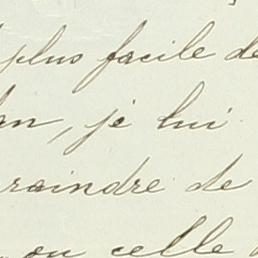 plus facile de
an, je lui
raindre de
ou celle